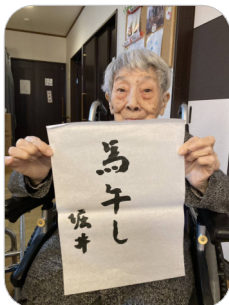 馬午し
堀井